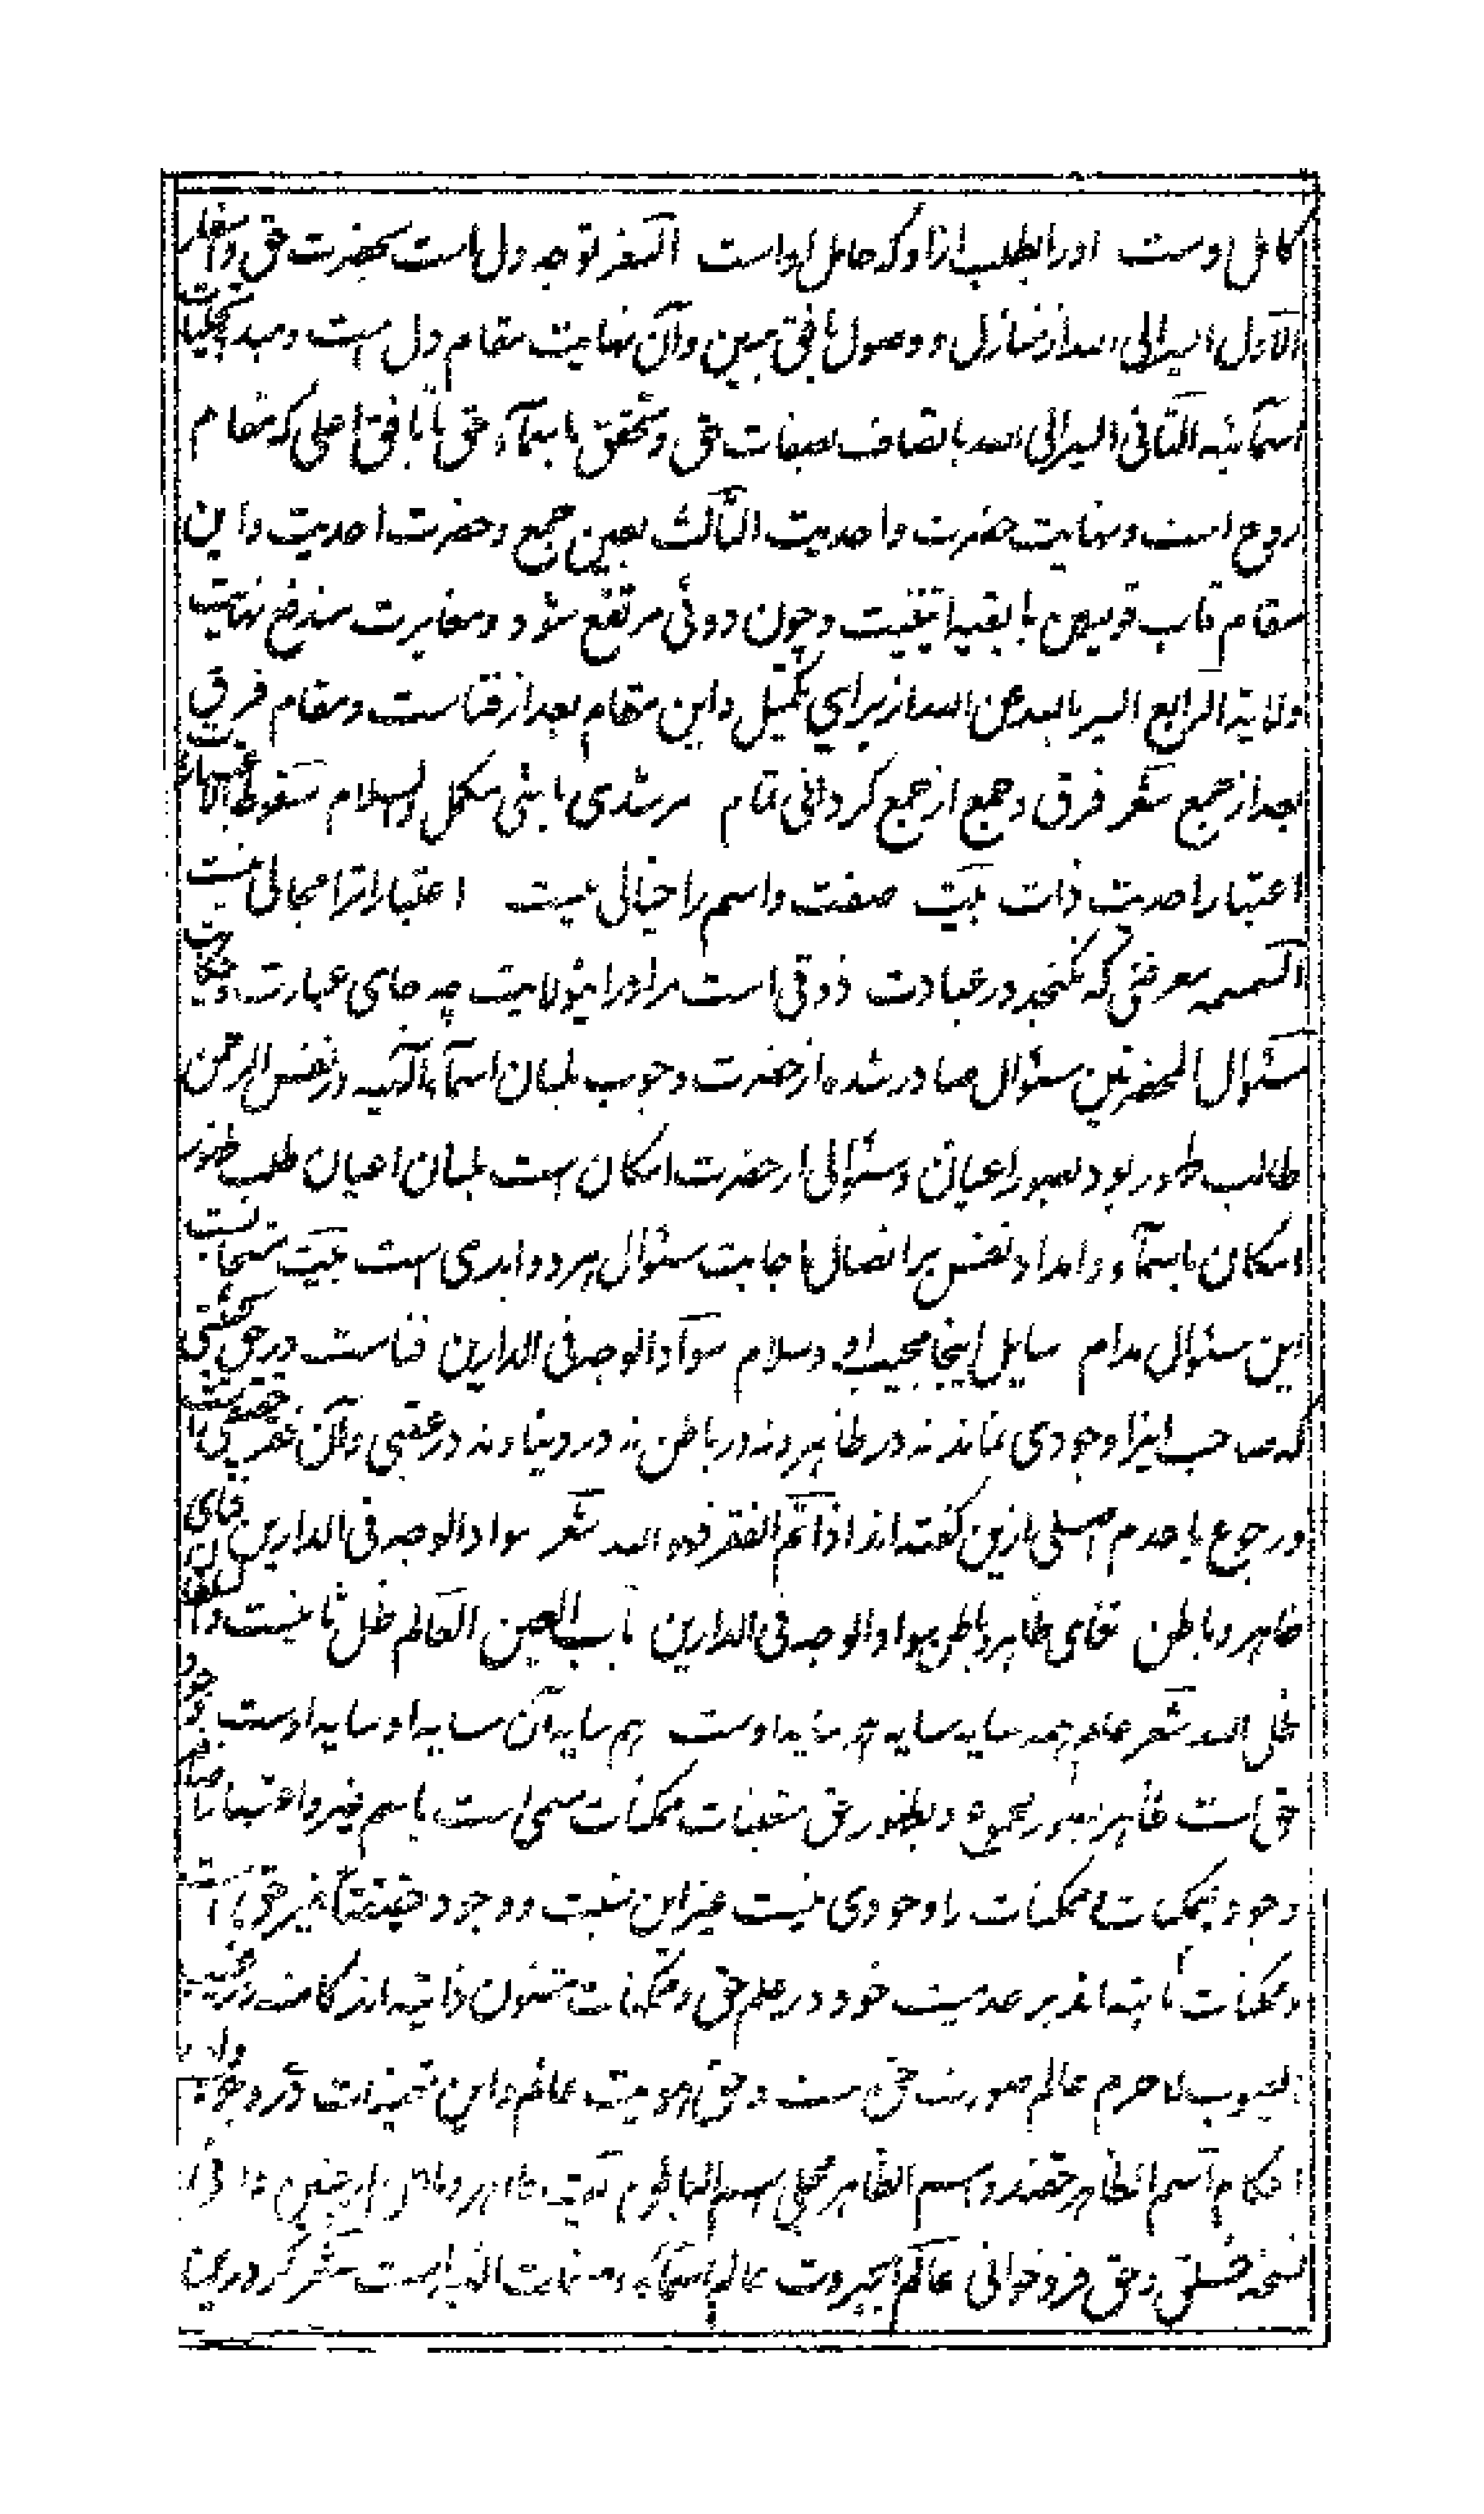 کامل اوست اورا بطلب ازاو که حامل اواست السفر توجه دل است بحضرت حق واسفار
الاول السیرالی الله از منازل و وصول بافق مبین وآن نهایت مقام دل است ومبدء تجلیات
اسمائیه الثانی السیرالی الله باتصاف بصفات حق وتحقق باسمآء حق تا بافق اعلی که مقام
روح است ونهایت حضرت واحدیت الثالث بعین جمع وحضرت احدیت واین
مقام قاب قوسین با بقیه اثنینیت وچون دوئی مرتفع شود ومغایرت مندفع نهایت
ولایة الرابع السیر بالله عن الله از برای تکمیل واین مقام بعد از فناست ومقام فرق
بعد از جمع شعر فرق وجمع از جمع گردانی تمام مرشدی باشی مکمل والسلام سقوط الاعتبارات
اعتبار احدیت ذات بیت صفت واسم را خیالی نیست اعتبارات را مجالی نیست
السمسمه معرفتی که نگنجد در عبادت ذوقی است مرا ورا نیولایت چه جای عبارت
سئوال الحضرتین سئوال صادر شده از حضرت وجوب بلسان اسمآء الهیه در نفس الرحمن
طالب ظهور بود بصور اعیان وسئوالی از حضرت امکان است بلسان اعیان طلب ظهور
امکان باسمآء وامداد نفس بر اتصال باجابت سئوال هر دو ابدی است بیت
این سئوال مدام سایل اینجا مجیب او وسلام سواد الوجه فی الدارین فناست در حق
که صاحب اینرا وجودی نماند نه در ظاهر ونه در باطن نه در دینا ونه در عقبی وآن فقر حقیقی
ورجوع باعدم اصلی ازین گفته اند اذا تم الفقر فهو الله شعر سواد الوجه فی الدارین
ظاهر وباطن فنای ظاهر وباطن سواد الوجه فی الدارین باب العین العالم ظل ثانیست
ظل الله شعر عالم همه سایه سایه هم سایه اوست هم سایه آن سایه او سایه اوست
حق است ظاهر بصور وبظهور حق متعینات ممکنات مسمی است باسم غیر واعتبار
وجود بممکنات ممکنات را وجودی نیست غیر این نسبت و وجود حقیقتا غیر حق
وممکنات ثابته اند بر عدمیت خود در علم حق وممکنات شئون ذاتیه اند کامنه در غیب
الغیوب لاجرم عالم صورت حق است وحق هویت عالم واین تعینات در وجود
احکام اسم الظاهر حقند واسم الظاهر مجلی اسم الباطن
نسخهٔ خلق وحق فرو خوانی عالم الجبروت عالم اسمآء وصفات الهیه است شعر گر درین